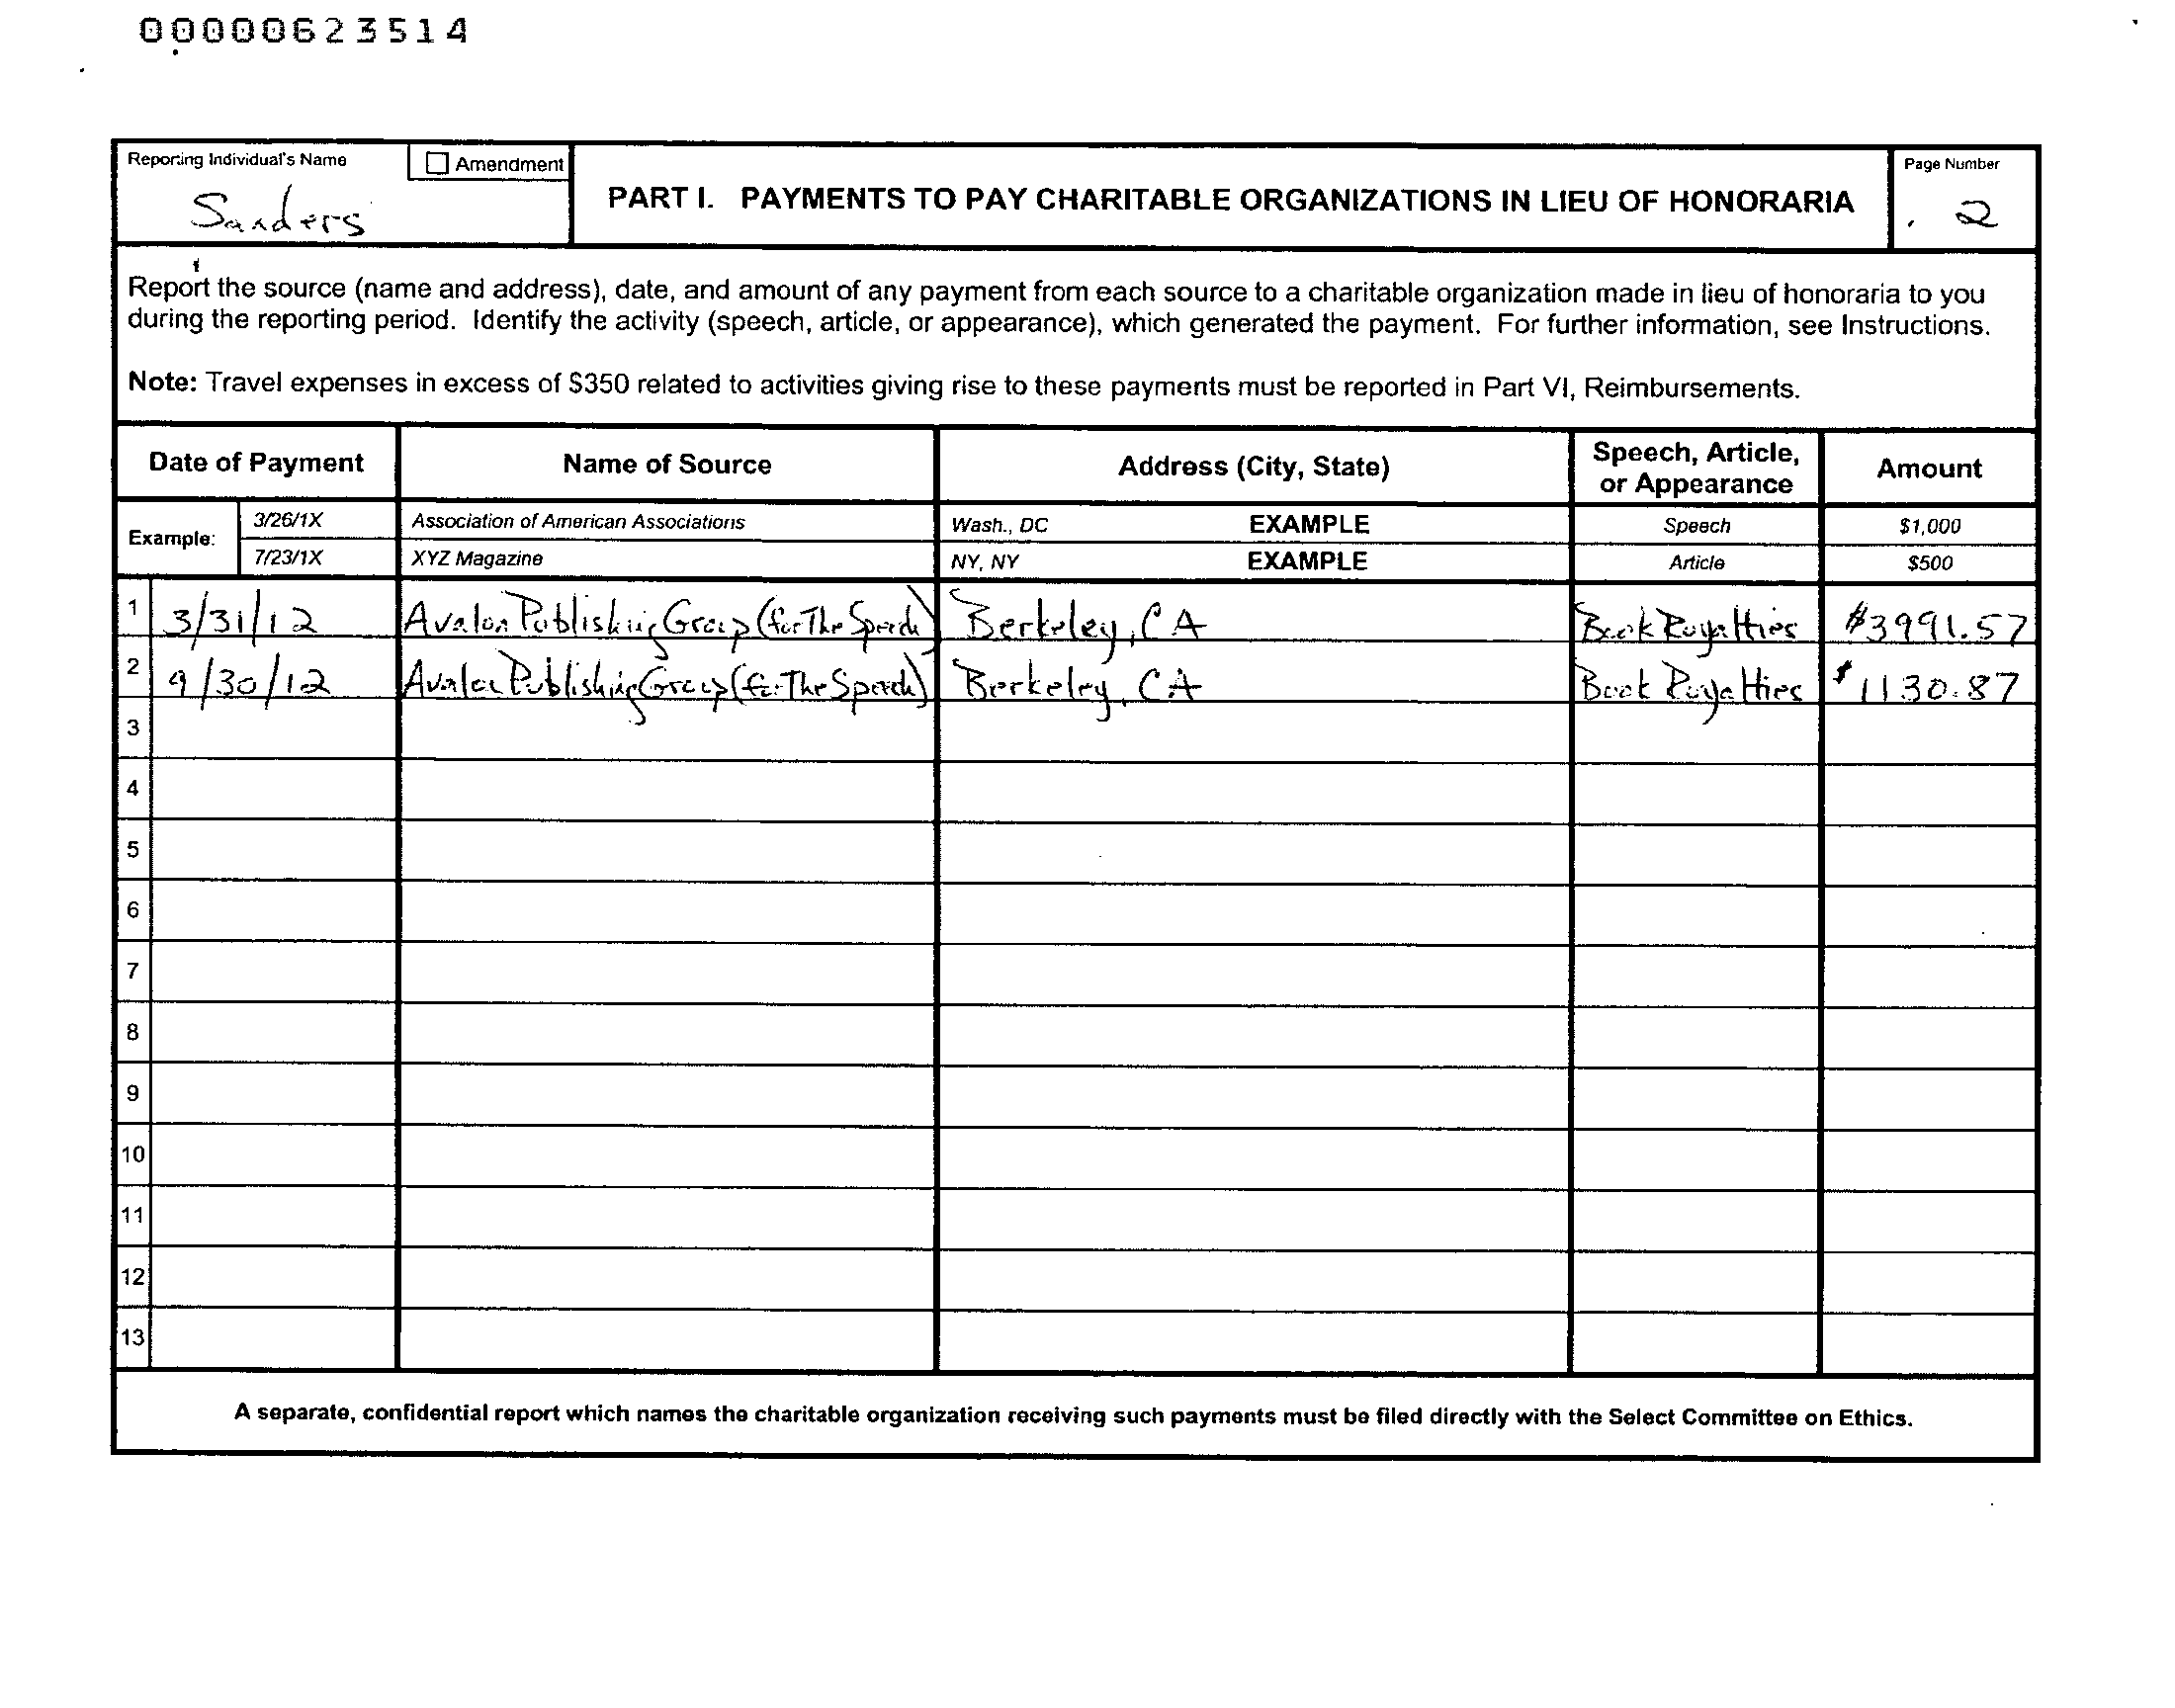 00000623514
Reporting Individual's Name
Amendment
Sanders
PART I. PAYMENTS TO PAY CHARITABLE ORGANIZATIONS IN LIEU OF HONORARIA
Page Number
2
Report the source (name and address), date, and amount of any payment from each source to a charitable organization made in lieu of honoraria to you
during the reporting period. Identify the activity (speech, article, or appearance), which generated the payment. For further information, see Instructions.
Note: Travel expenses in excess of $350 related to activities giving rise to these payments must be reported in Part VI, Reimbursements.
Date of Payment Name of Source Address (City, State) Speech, Article, or Appearance Amount
Example: 3/26/1X Association of American Associations Wash., DC EXAMPLE Speech $1,000
7/23/1X XYZ Magazine NY, NY EXAMPLE Article $500
1 3/31/12 Avalon Publishing Group (for The Speech) Berkeley, CA Book Royalties $3991.57
2 9/30/12 Avalon Publishing Group (for The Speech) Berkeley, CA Book Royalties $1130.87
3
4
5
6
7
8
9
10
11
12
13
A separate, confidential report which names the charitable organization receiving such payments must be filed directly with the Select Committee on Ethics.